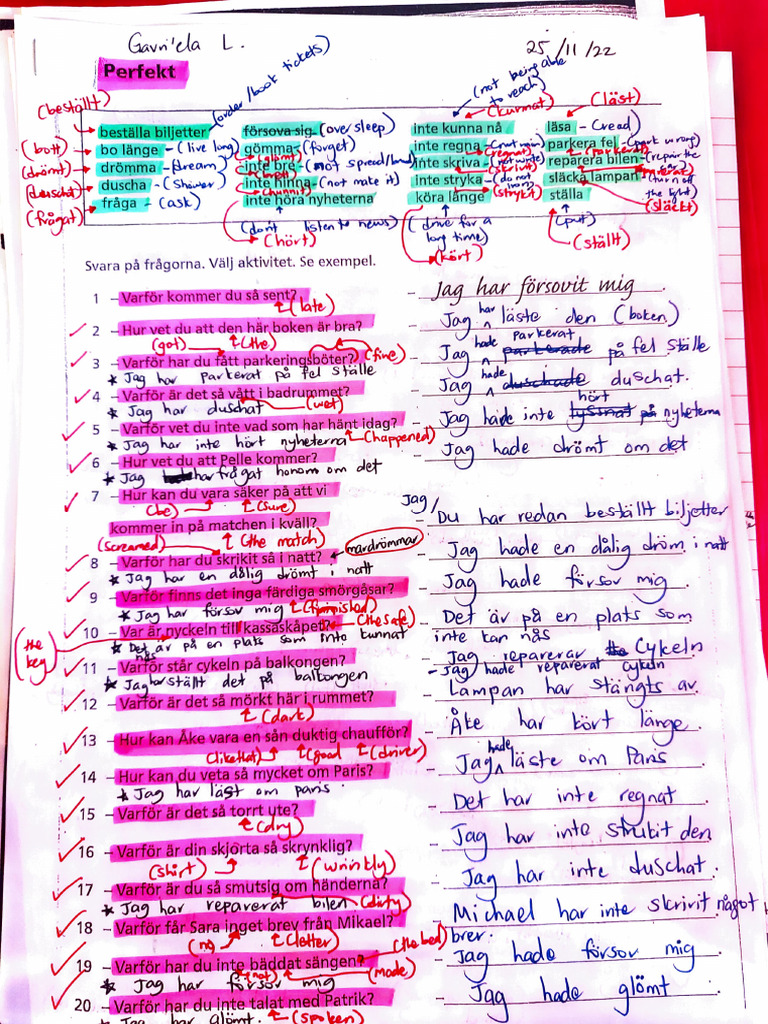 Gavri'ela L. 25/11/22
Perfekt
(order/book tickets)
(not being able to reach)
(beställt) (kunnat) (läst)
beställa biljetter försova sig (oversleep) inte kunna nå läsa - (read)
(bott) bo länge - (live long) gömma - (forget) inte regna - (not rain) parkera fel - (park wrong)
(glömt) (regnat) (parkerat)
(drömt) drömma - (dream) inte bre - (not spread/ inte skriva - (not write) reparera bilen - (repair the
(skrivit)
(duschat) duscha - (shower) inte hinna - (not make it) inte stryka - (do not släcka lampan - (turn off the light)
(hunnit) (strykt) (släckt)
(frågat) fråga - (ask) inte höra nyheterna köra länge ställa
(dont listen to news) (drive for a long time) (put)
(hört) (kört) (ställt)
Svara på frågorna. Välj aktivitet. Se exempel.
1 – Varför kommer du så sent? – Jag har försovit mig
(late)
2 – Hur vet du att den här boken är bra? – Jag har läste den (boken)
(got) (the)
3 – Varför har du fått parkeringsböter? (fine) – Jag hade parkerat parkerade på fel ställe
* Jag har parkerat på fel ställe
4 – Varför är det så vått i badrummet? – Jag hade duschade duschat.
* Jag har duschat (wet)
5 – Varför vet du inte vad som har hänt idag? – Jag hade inte hört lyssnat på nyheterna
* Jag har inte hört nyheterna (happened)
6 – Hur vet du att Pelle kommer? – Jag hade drömt om det
* Jag har frågat honom om det
7 – Hur kan du vara säker på att vi
(be) (sure)
kommer in på matchen i kväll? Jag/ Du har redan beställt biljetter
(screamed) (the match)
8 – Varför har du skrikit så i natt? mardrömmar – Jag hade en dålig dröm i natt
* Jag har en dålig drömt i natt
9 – Varför finns det inga färdiga smörgåsar? – Jag hade försov mig
* Jag har försov mig
10 – Var är nyckeln till kassaskåpet? (the safe) – Det är på en plats som inte kan nås
(the key)
* Det är på en plats som inte kunnat nås
11 – Varför står cykeln på balkongen? – Jag reparerar the cykeln
– Jag hade reparerat cykeln
* Jag har ställt det på balkongen
12 – Varför är det så mörkt här i rummet? – Lampan har stängts av
(dark)
13 – Hur kan Åke vara en sån duktig chaufför? – Åke har kört länge
(like that) (good) (driver)
14 – Hur kan du veta så mycket om Paris? – Jag hade läste om Paris
* Jag har läst om paris
15 – Varför är det så torrt ute? – Det har inte regnat
(dry)
16 – Varför är din skjorta så skrynklig? – Jag har inte strukit den
(shirt) (wrinkly)
17 – Varför är du så smutsig om händerna? – Jag har inte duschat
* Jag har reparerat bilen (dirty)
18 – Varför får Sara inget brev från Mikael? – Michael har inte skrivit något brer.
(no) (letter) (the bed)
19 – Varför har du inte bäddat sängen? – Jag hade försov mig
(not) (made)
* Jag har försov mig
20 – Varför har du inte talat med Patrik? – Jag hade glömt
* Jag har glömt. (spoken)